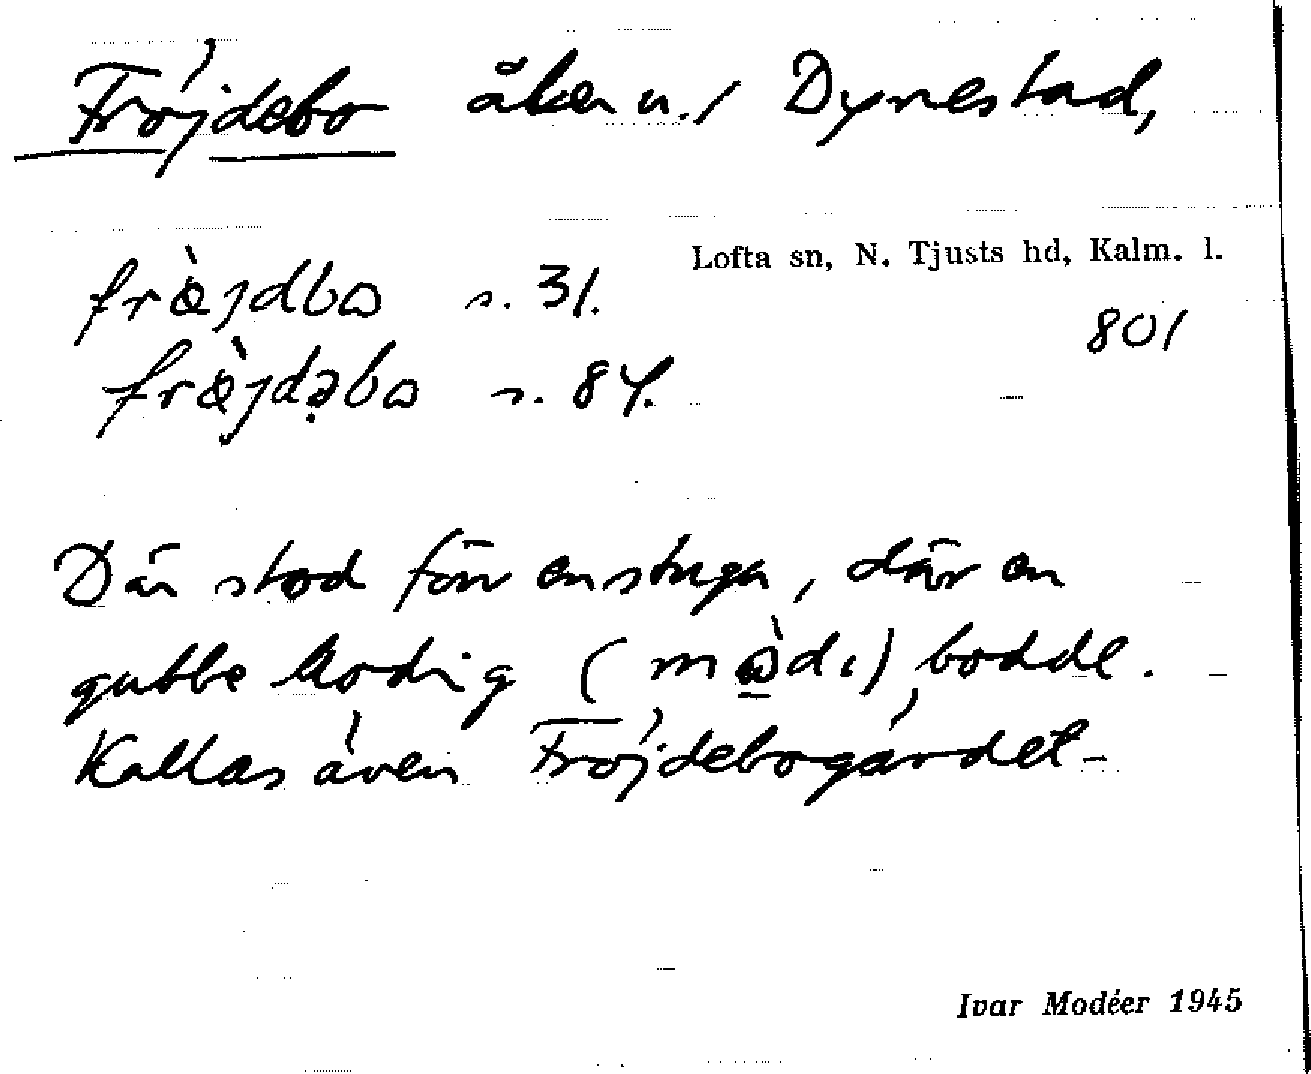 Fröjdebo åker u./ Dynestad,
Lofta sn, N. Tjusts hd, Kalm. l.
frœ̀jdbɷ s. 31.
801
frœ̀jdəbɷ s. 84.
Där stod förr en stuga, där en
gubbe Modig (mɷ̀dı) bodde.
Kallas även Fröjdebogärdet.
Ivar Modéer 1945